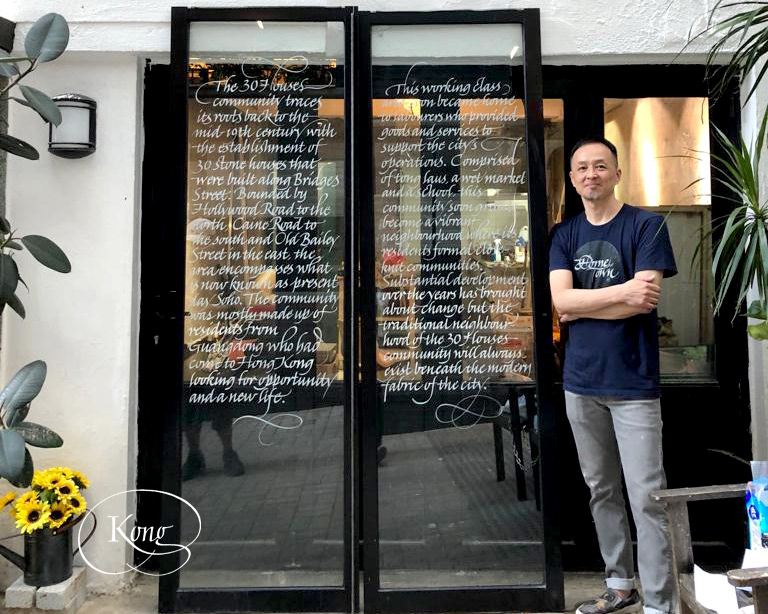 The 30 Houses
community traces
its roots back to the
mid-19th century with
the establishment of
30 stone houses that
were built along Bridges
Street. Bounded by
Hollywood Road to the
north, Caine Road to
the south and Old Bailey
Street in the east, the
area encompasses what
is now known as present
day Soho. The community
was mostly made up of
residents from
Guangdong who had
come to Hong Kong
looking for opportunity
and a new life.
This working class
became home
to labourers who provided
goods and services to
support the city's
operations. Comprised
of tong laus, a wet market
and a school, this
community soon
become a vibrant
neighbourhood where its
residents formed close
knit communities.
Substantial development
over the years has brought
about change but the
traditional neighbour-
hood of the 30 Houses
community will always
exist beneath the modern
fabric of the city.
Home
Town
Kong